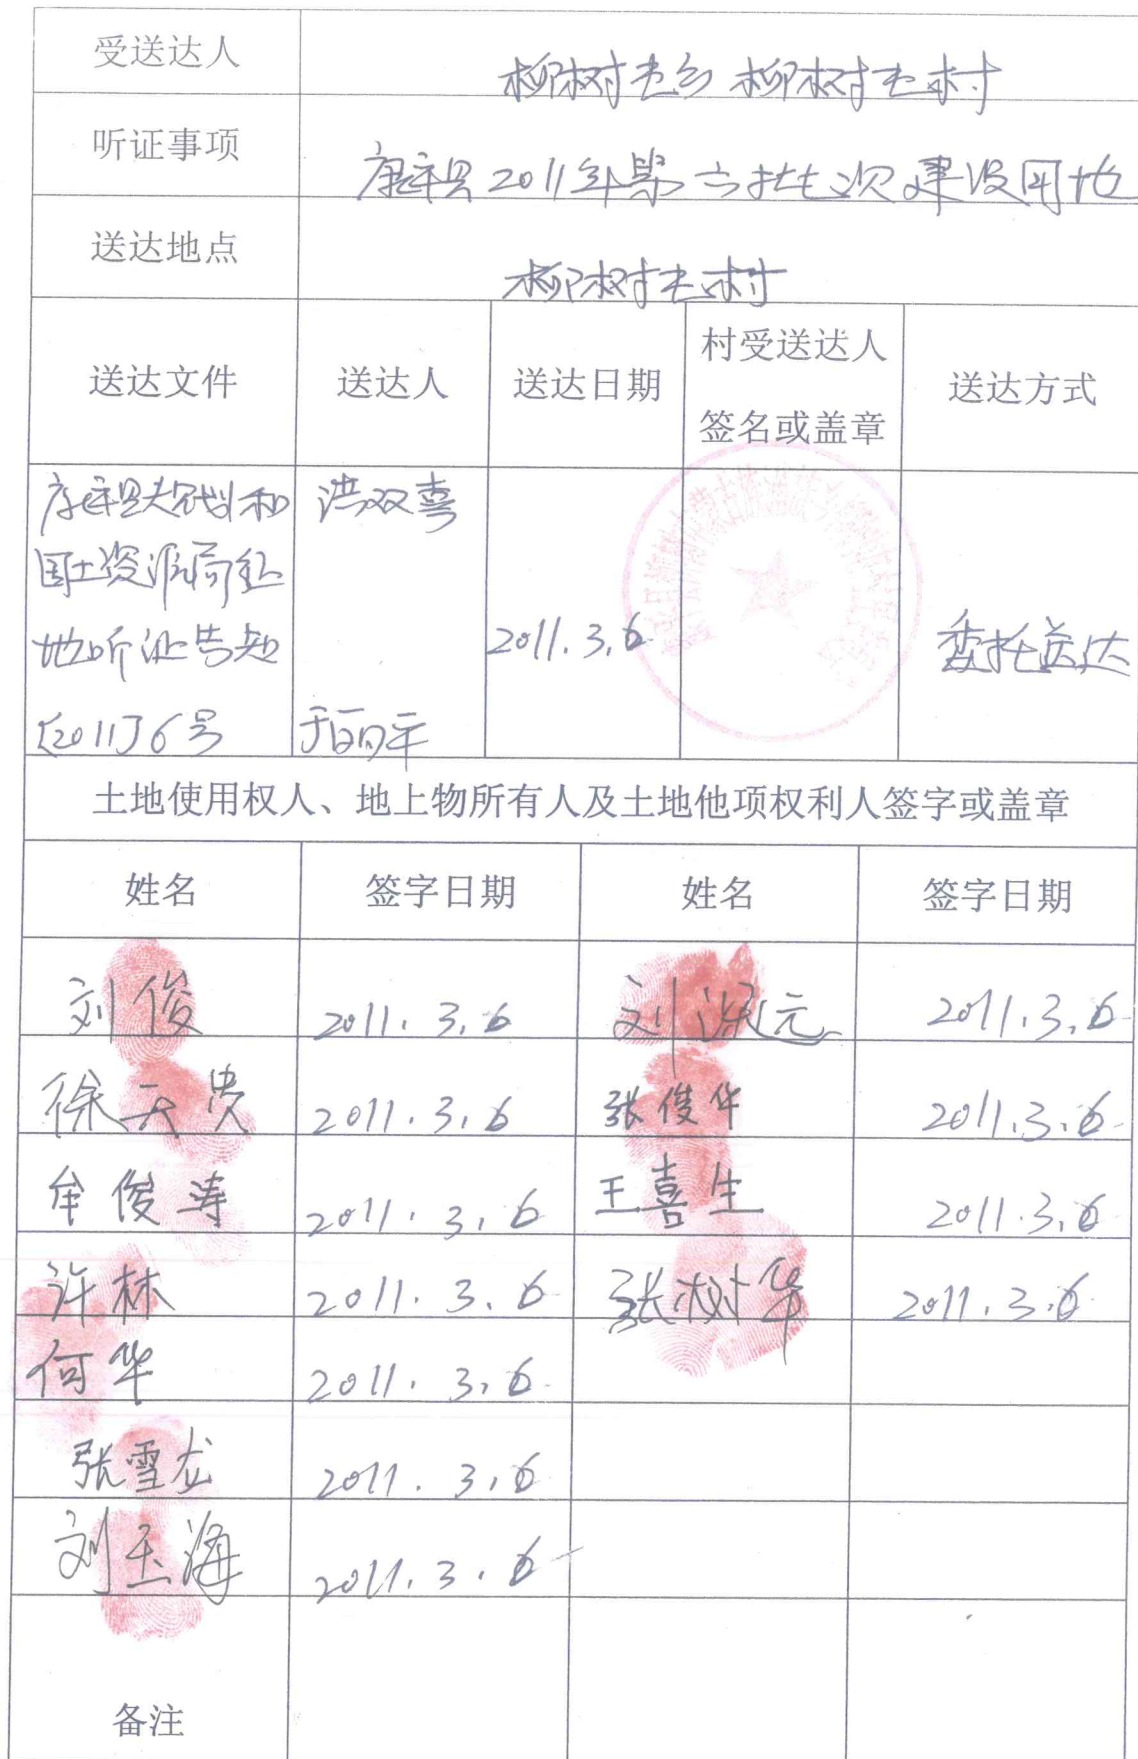 受送达人
柳树屯乡 柳树屯村
听证事项
康平县2011年第六批次建设用地
送达地点
柳树屯村
送达文件 送达人 送达日期 村受送达人 送达方式
签名或盖章
康平县规划和 洪双喜
国土资源局征
地听证告知 2011.3.6 委托送达
[2011]6号
土地使用权人、地上物所有人及土地他项权利人签字或盖章
姓名 签字日期 姓名 签字日期
刘俊 2011.3.6 刘洪元 2011.3.6
徐天贵 2011.3.6 张俊华 2011.3.6
牟俊涛 2011.3.6 王喜生 2011.3.6
许林 2011.3.6 张树华 2011.3.6
何华 2011.3.6
张雪龙 2011.3.6
刘玉海 2011.3.6
备注